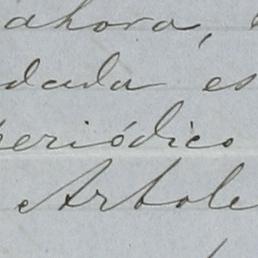 ahora,
dada es
periódico
Arbole